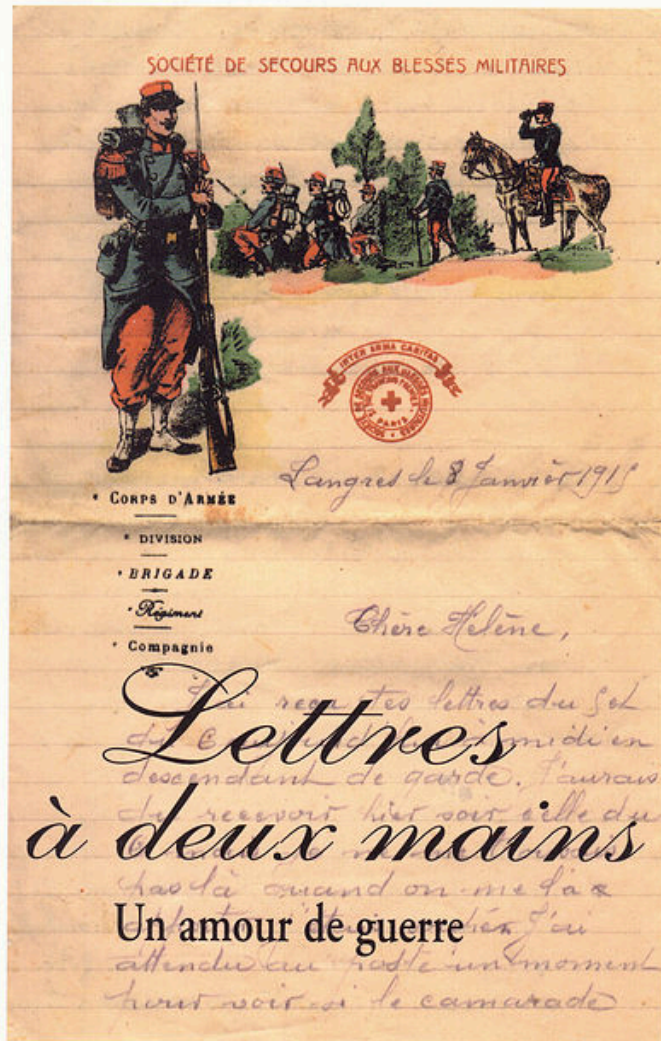 SOCIÉTÉ DE SECOURS AUX BLESSÉS MILITAIRES
INTER ARMA CARITAS
SOCIÉTÉ DE SECOURS AUX BLESSÉS MILITAIRES
PARIS
Langres le 8 Janvier 1915
* CORPS D'ARMÉE
* DIVISION
* BRIGADE
* Régiment
* Compagnie
Chère Helène,
J'ai reçu tes lettres du 5 et
Lettres
du midi en
descendant de garde. J'aurais
à deux mains
du recevoir hier soir celle du
pas là quand on me l'a
Un amour de guerre
J'ai
attendu au poste un moment
pour voir si le camarade